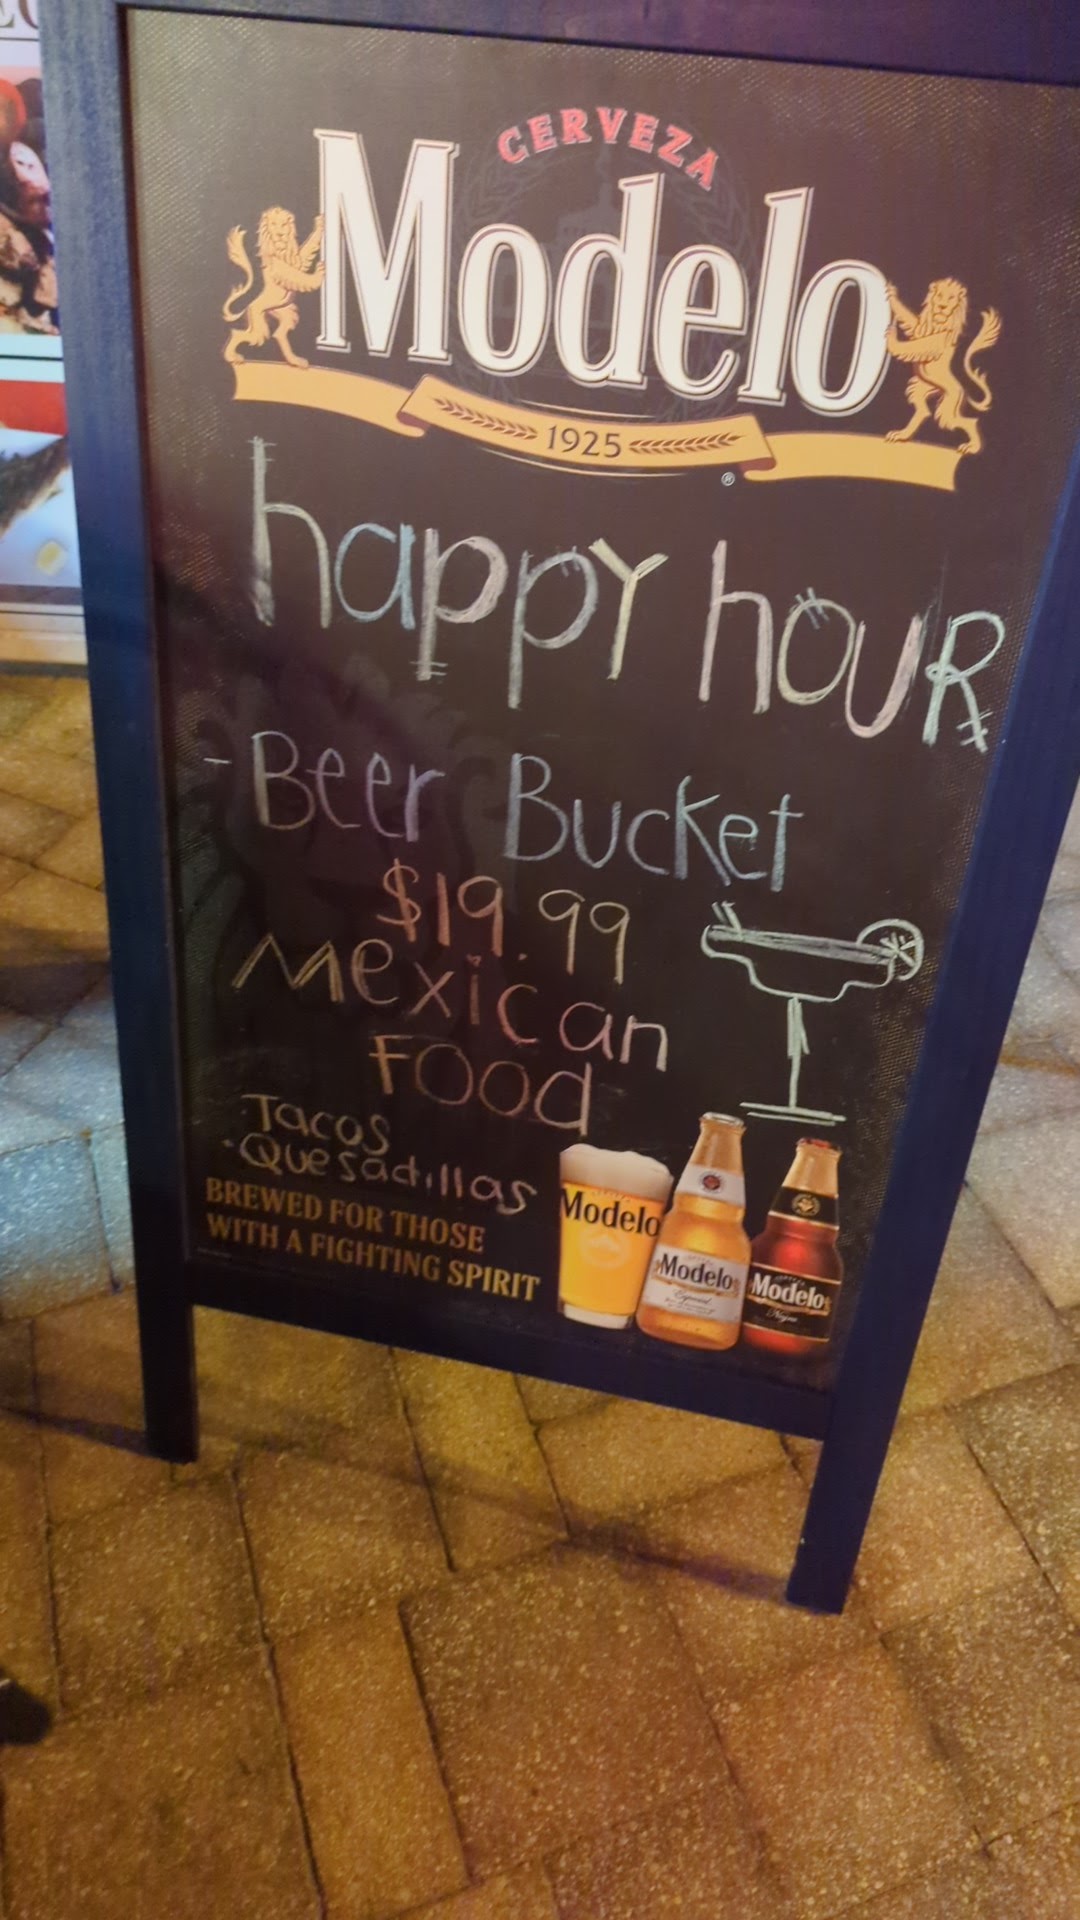 CERVEZA
Modelo
1925
®
happy houR
- Beer Bucket
$19.99
Mexican
FOOd
Tacos
- Quesadillas
BREWED FOR THOSE
WITH A FIGHTING SPIRIT
Modelo
Modelo
Especial
Modelo
Negra